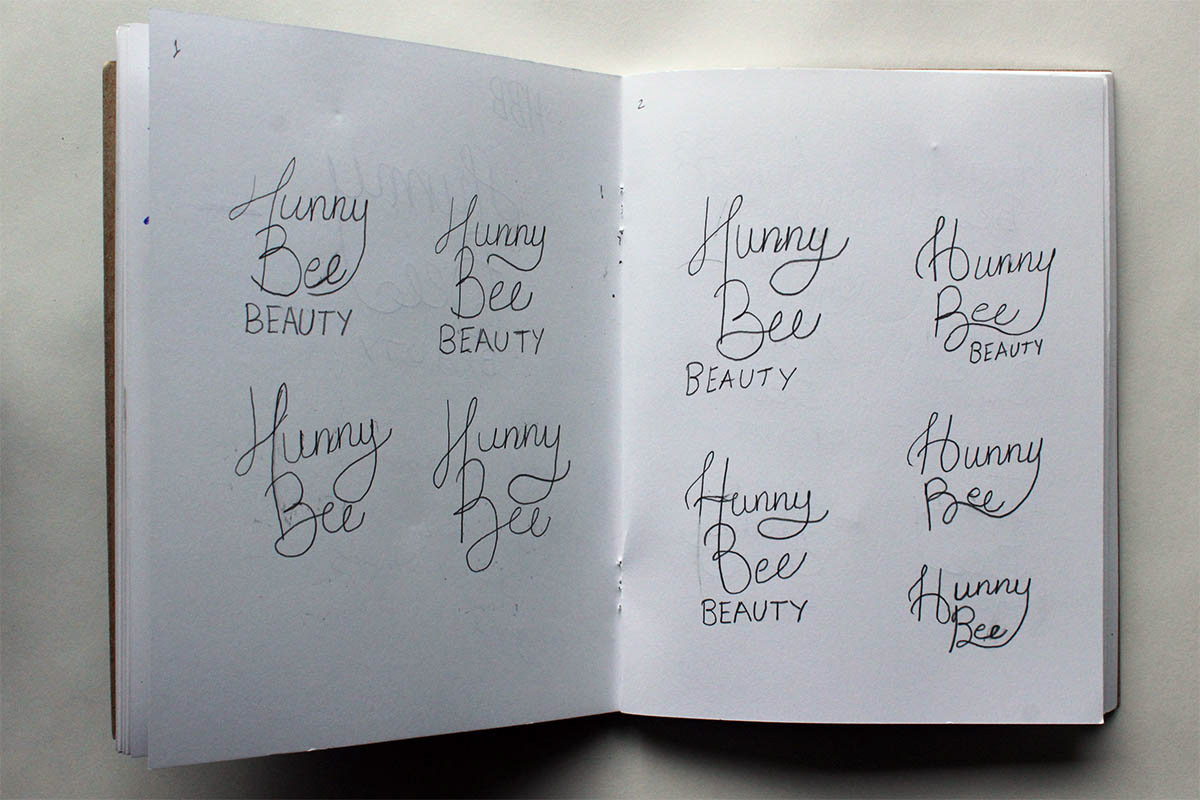 1
Hunny
Bee
BEAUTY
Hunny
Bee
BEAUTY
Hunny
Bee
Hunny
Bee
2
Hunny
Bee
BEAUTY
Hunny
Bee
BEAUTY
Hunny
Bee
BEAUTY
Hunny
Bee
Hunny
Bee